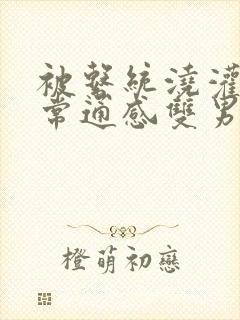 被繫統澆灌
常通感雙男
橙萌初戀